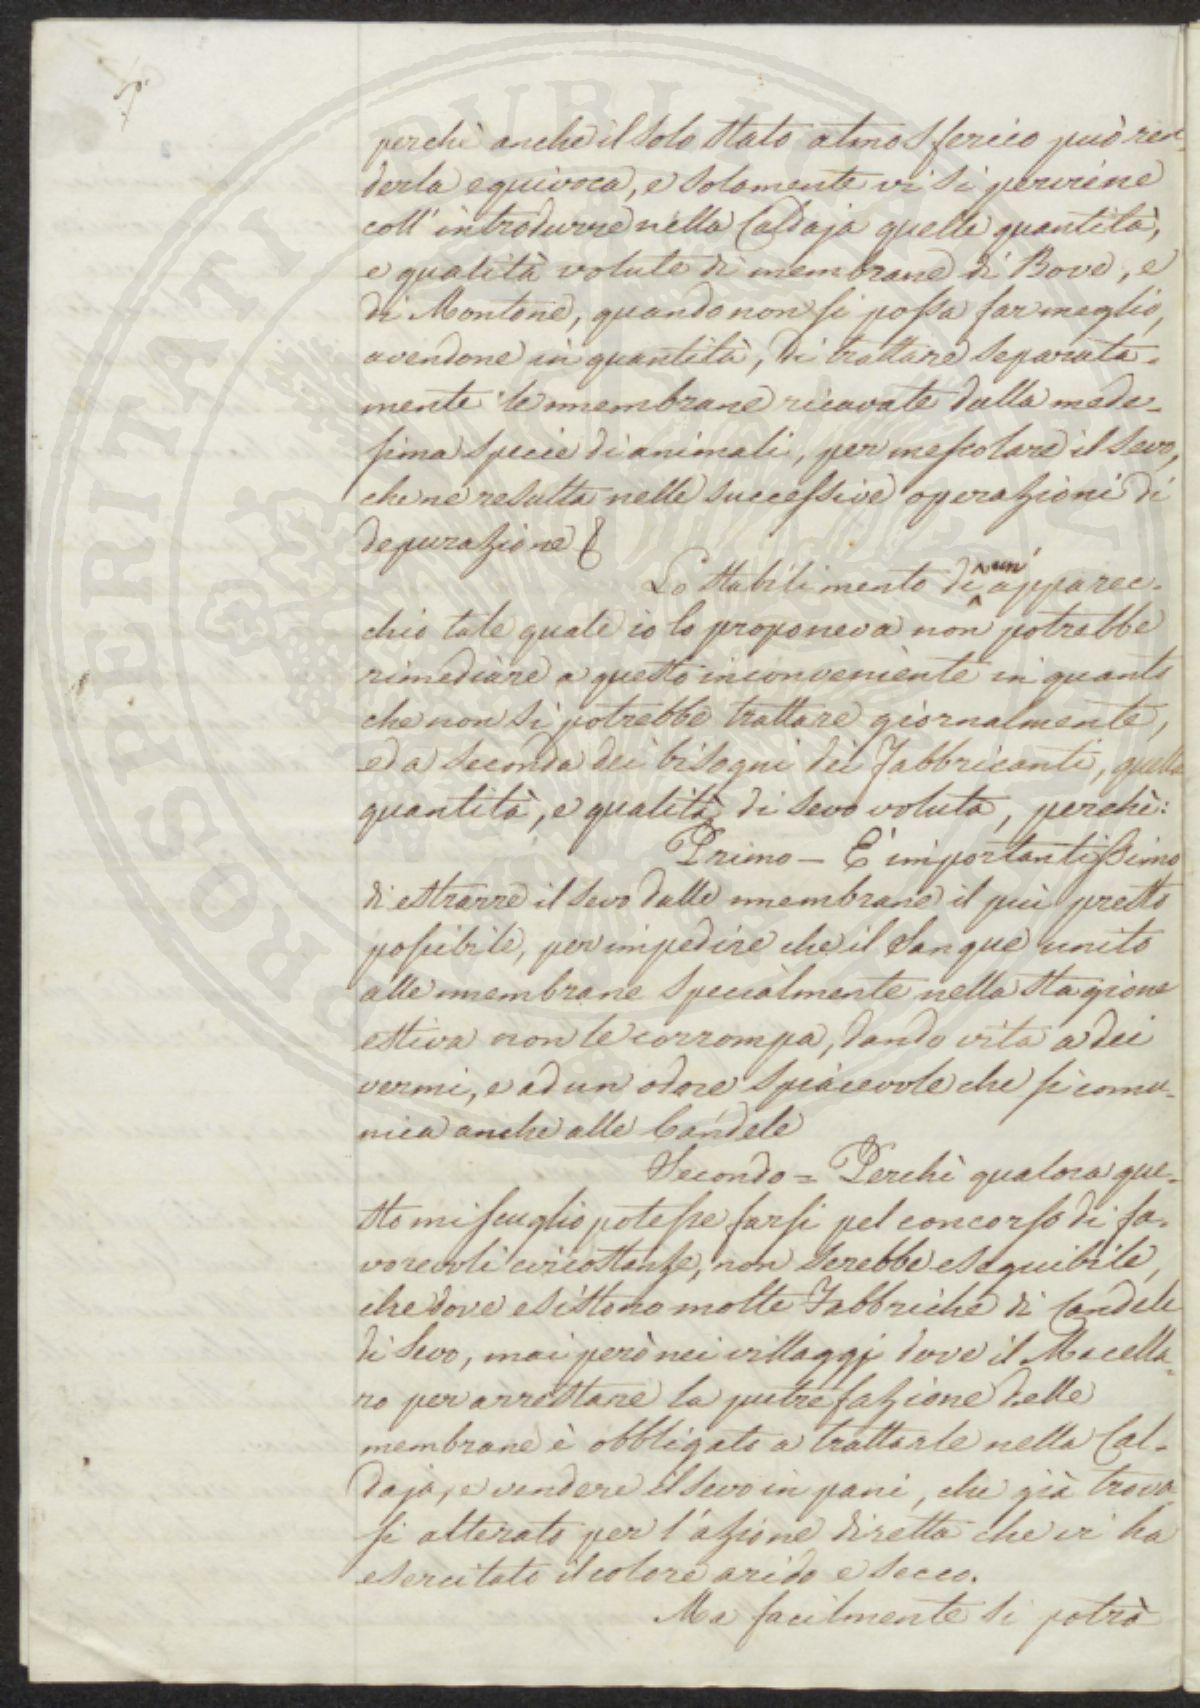 perchè anche il solo stato atmosferico può ren
derla equivoca, e solamente vi si perviene
coll'introdurre nella Caldaja quelle quantità,
e qualità volute di membrane di Bove, e
di Montone, quando non si possa far meglio,
avendone in quantità, di trattare separata-
mente le membrane ricavate dalla mede-
sima specie di animali, per mescolare il sevo,
che ne resulta nelle successive operazioni di
depurazione
Lo stabilimento di un apparec-
chio tale quale io lo proponeva non potrebbe
rimediare a questo inconveniente in quanto
che non si potrebbe trattare giornalmente,
ed a seconda dei bisogni dei Fabbricanti, quella
quantità, e qualità di sevo voluta, perchè:
Primo — È importantissimo
di estrarre il sevo dalle membrane il più presto
possibile, per impedire che il Sangue unito
alle membrane specialmente nella stagione
estiva non le corrompa, dando vita a dei
vermi, e ad un odore spiacevole che si comu-
nica anche alle Candele
Secondo = Perchè qualora que-
sto miscuglio potesse farsi pel concorso di fa-
vorevoli circostanze, non serebbe eseguibile,
che dove esistono molte Fabbriche di Candele
di Sevo, mai però nei villaggj dove il Macella-
ro per arrestare la putrefazione delle
membrane è obbligato a trattarle nella Cal-
daja, e vendere il sevo in pani, che già trova
si alterato per l'azione diretta che vi ha
esercitato il colore arido e secco.
Ma facilmente si potrà
PROSPERITATI PUBLICAE